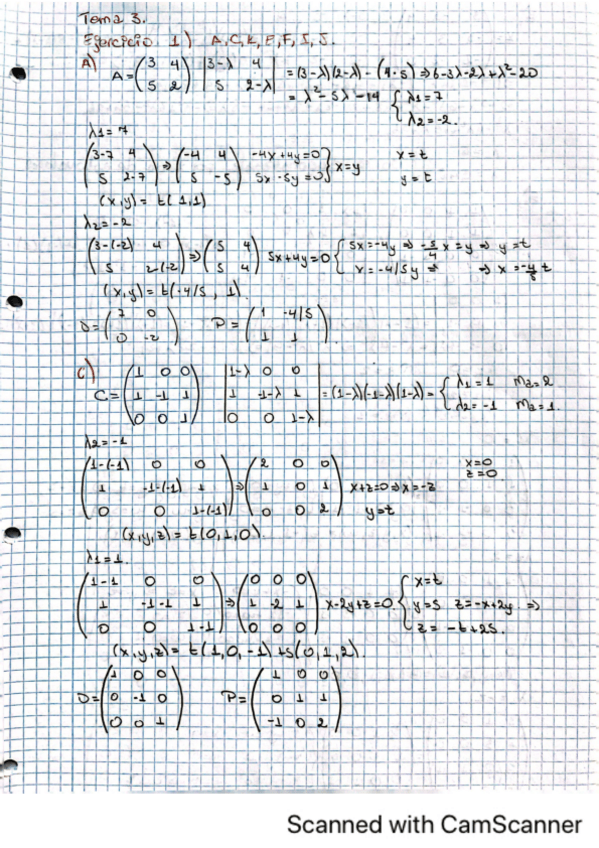 Tema 3.
Ejercicio 1) A, C, E, F, I, J.
A) A = (3 4 / 5 2) |3-λ 4 / 5 2-λ| = (3-λ)(2-λ) - (4·5) ⇒ 6-3λ-2λ+λ²-20
= λ²-5λ-14 { λ1 = 7
λ2 = -2.
λ1 = 7
(3-7 4 / 5 2-7) ⇒ (-4 4 / 5 -5) -4x+4y=0 / 5x-5y=0 } x=y x=t
y=t
(x,y) = t(1,1)
λ2 = -2
(3-(-2) 4 / 5 2-(-2)) ⇒ (5 4 / 5 4) 5x+4y=0 { 5x=-4y ⇒ -5/4 x = y ⇒ y=t
x = -4/5y ⇒ ⇒ x = -4/5 t
(x,y) = t(-4/5, 1).
D = (7 0 / 0 -2) P = (1 -4/5 / 1 1).
C) C = (1 0 0 / 1 -1 1 / 0 0 1) |1-λ 0 0 / 1 -1-λ 1 / 0 0 1-λ| = (1-λ)(-1-λ)(1-λ) = { λ1 = 1 Ma=2
λ2 = -1 Ma=1.
λ2 = -1
(1-(-1) 0 0 / 1 -1-(-1) 1 / 0 0 1-(-1)) ⇒ (2 0 0 / 1 0 1 / 0 0 2) x+z=0 ⇒ x=-z x=0
z=0
y=t
(x,y,z) = t(0,1,0).
λ1 = 1.
(1-1 0 0 / 1 -1-1 1 / 0 0 1-1) ⇒ (0 0 0 / 1 -2 1 / 0 0 0) x-2y+z=0 { x=t
y=s z=-x+2y ⇒
z = -t+2s.
(x,y,z) = t(1,0,-1) + s(0,1,2).
D = (1 0 0 / 0 -1 0 / 0 0 1) P = (1 0 0 / 0 1 1 / -1 0 2)
Scanned with CamScanner